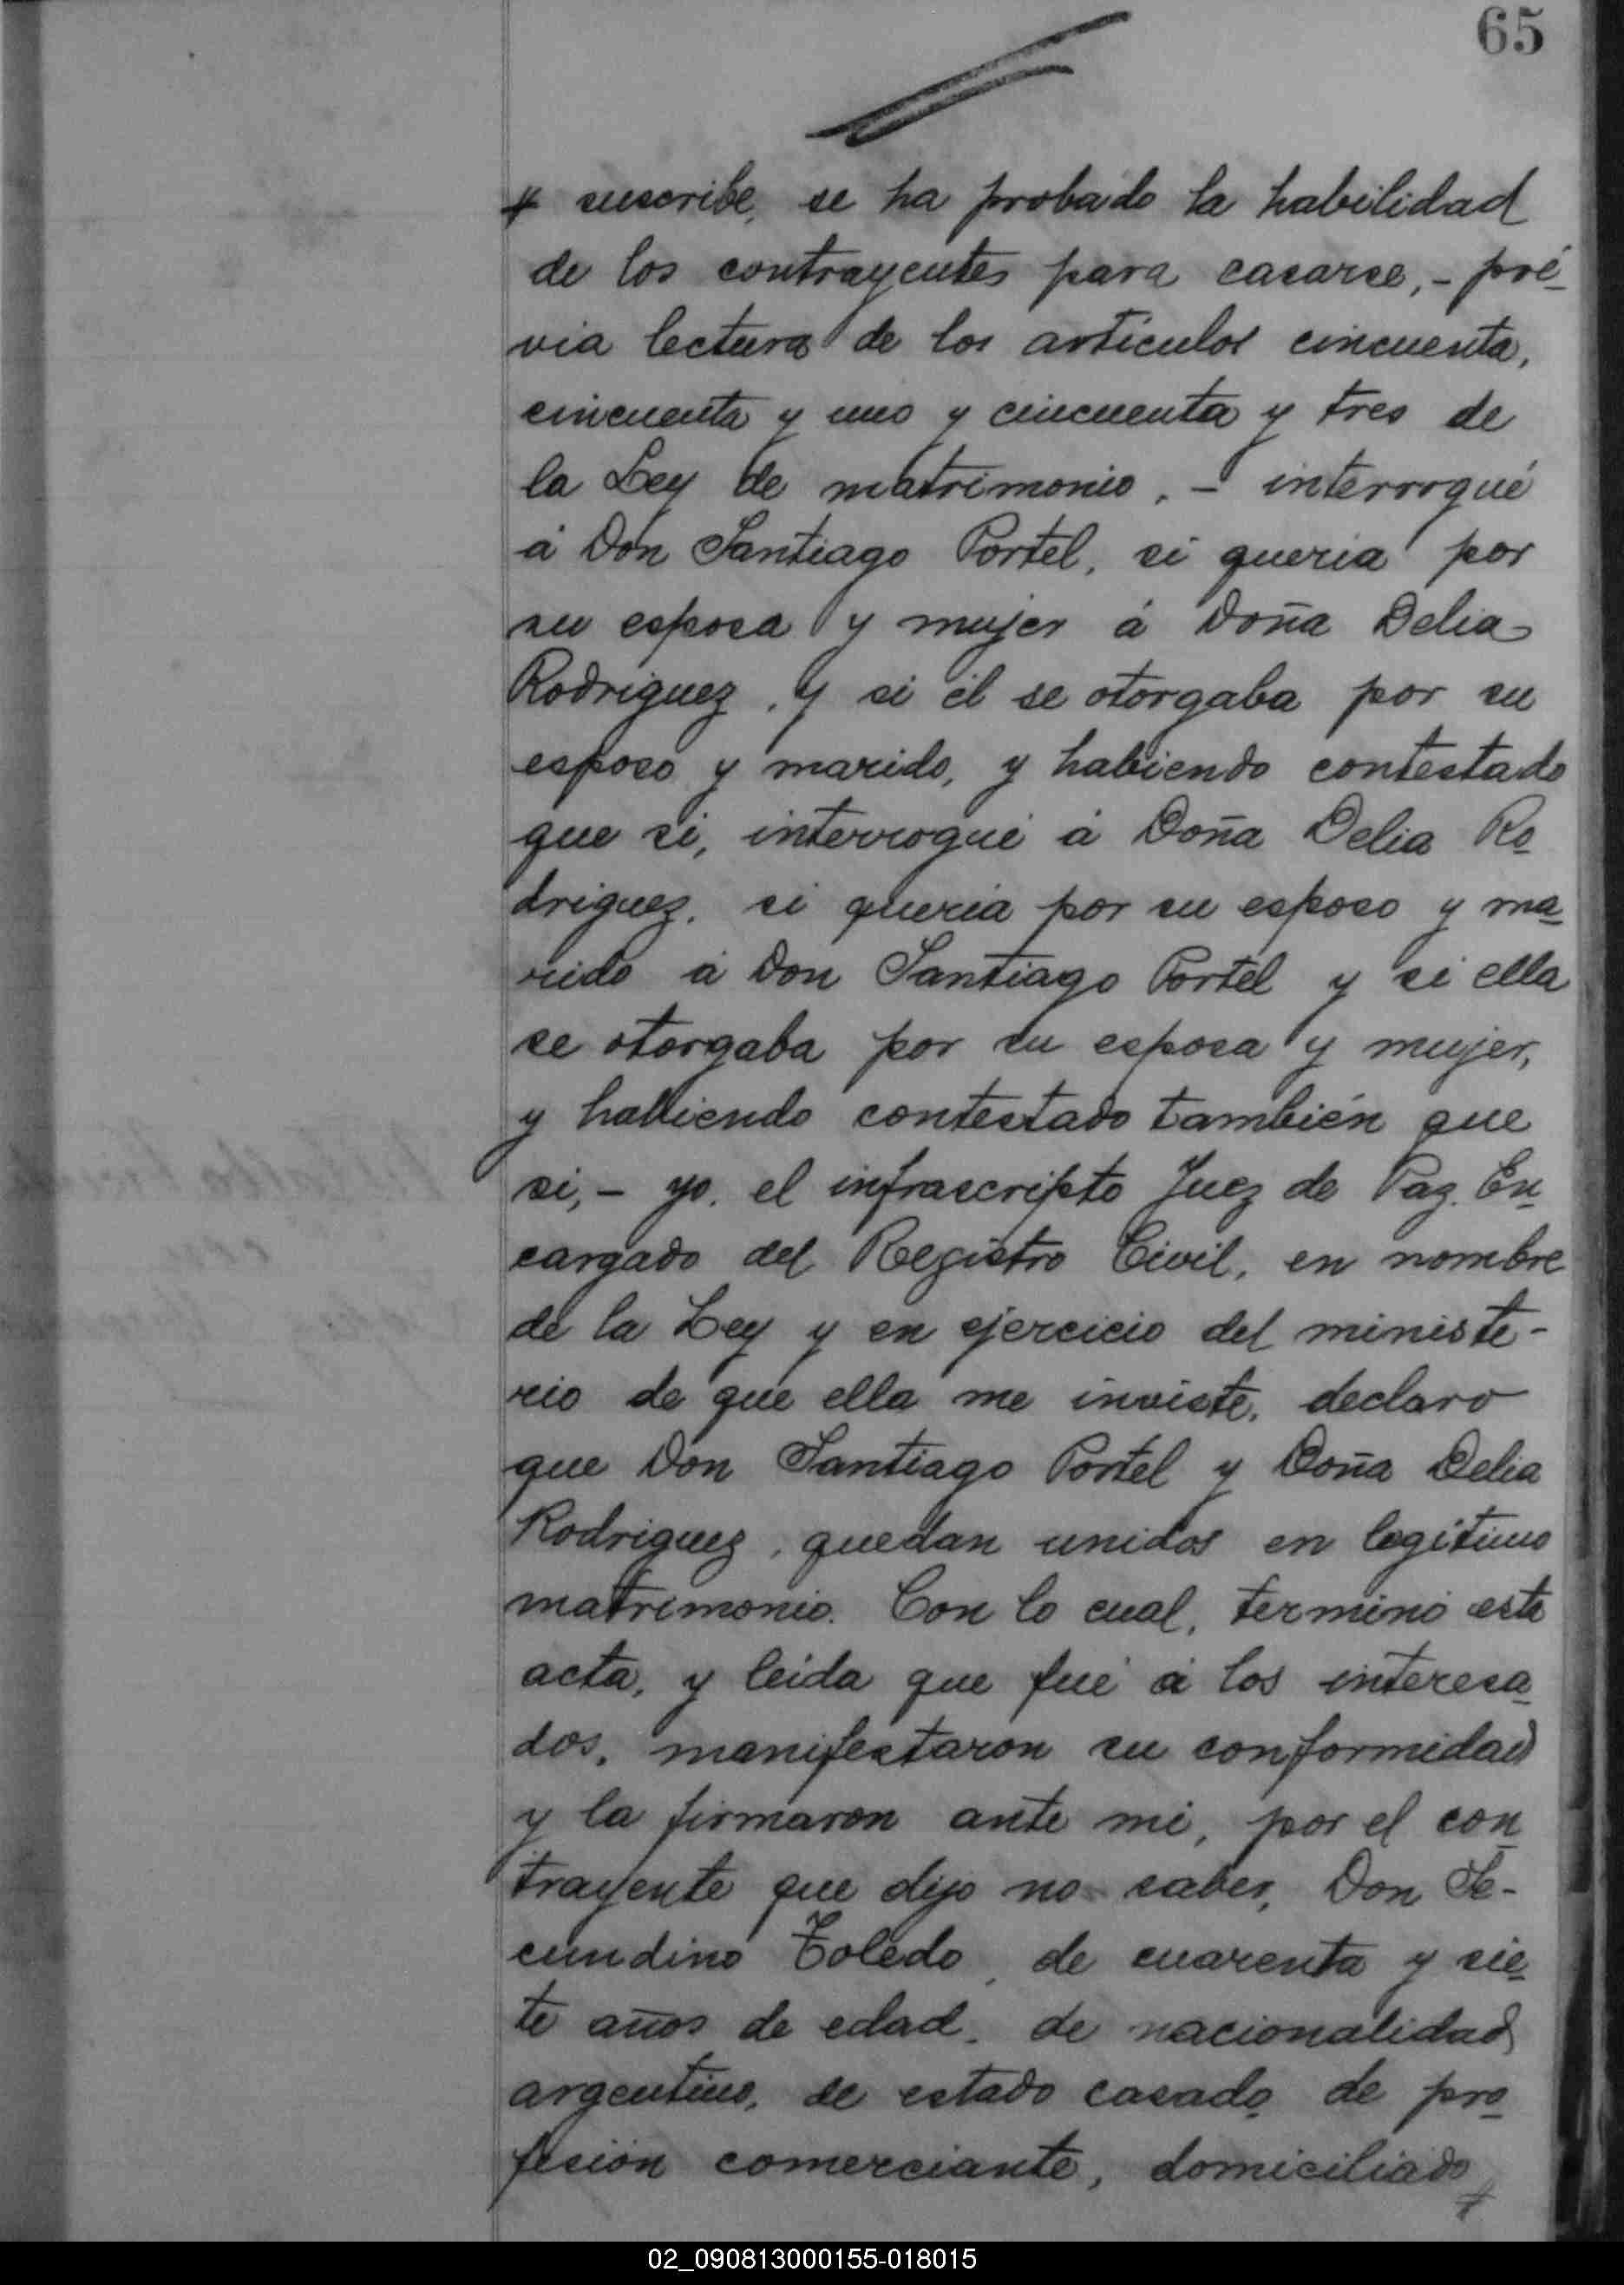 65
# suscribe, se ha probado la habilidad
de los contrayentes para casarse, - pré-
via lectura de los artículos cincuenta,
cincuenta y uno y cincuenta y tres de
la Ley de matrimonio, - interrogué
á Don Santiago Portel, si queria por
su esposa y mujer á Doña Delia
Rodriguez, y si él se otorgaba por su
esposo y marido, y habiendo contestado
que si, interrogué á Doña Delia Ro-
driguez, si queria por su esposo y ma-
rido á Don Santiago Portel y si ella
se otorgaba por su esposa y mujer,
y habiendo contestado también que
si, - yo, el infrascripto Juez de Paz, En-
cargado del Registro Civil, en nombre
de la Ley y en ejercicio del ministe-
rio de que ella me inviste, declaro
que Don Santiago Portel y Doña Delia
Rodriguez, quedan unidos en legítimo
matrimonio. Con lo cual, terminó esta
acta, y leida que fué á los interesa-
dos, manifestaron su conformidad
y la firmaron ante mi, por el con-
trayente que dijo no saber, Don Se-
cundino Toledo, de cuarenta y sie-
te años de edad, de nacionalidad
argentino, de estado casado, de pro-
fesión comerciante, domiciliado #
02_090813000155-018015